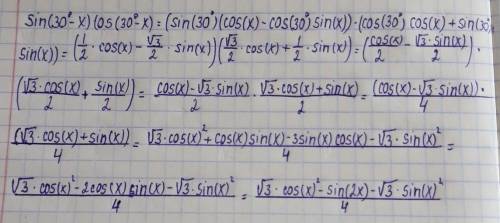 Sin(30°-x) Cos(30°-x) = (sin(30°)(cos(x) - cos(30°) sin(x)) · (cos(30°) cos(x) + sin(30°)·
sin(x)) = (1/2 · cos(x) - √3/2 · sin(x)) (√3/2 · cos(x) + 1/2 · sin(x)) = (cos(x)/2 - √3·sin(x)/2) ·
(√3·cos(x)/2 + sin(x)/2) = cos(x)-√3·sin(x)/2 · √3·cos(x)+sin(x)/2 = (cos(x)-√3·sin(x))·/4
(√3·cos(x)+sin(x))/4 = √3·cos(x)²+cos(x)sin(x)-3sin(x)cos(x)-√3·sin(x)²/4 =
√3·cos(x)²-2cos(x)sin(x)-√3·sin(x)²/4 = √3·cos(x)²-sin(2x)-√3·sin(x)²/4